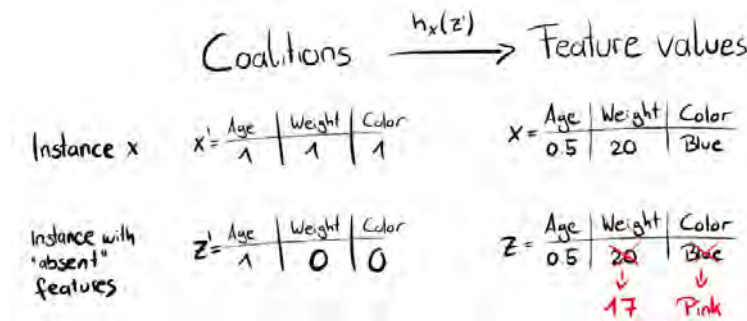 hx(z')
Coalitions → Feature values
Instance x
x' = Age Weight Color
1 1 1
x = Age Weight Color
0.5 20 Blue
Instance with
"absent"
features
z' = Age Weight Color
1 0 0
z = Age Weight Color
0.5 20 Blue
17 Pink